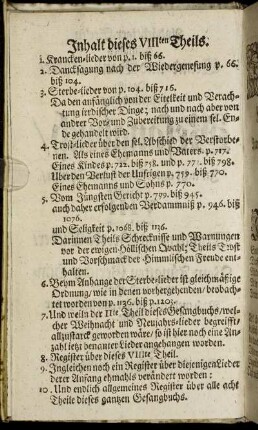 Inhalt dieses VIIIten Theils.
1. Krancken-lieder von p. 1. biß 66.
2. Dancksagung nach der Wiedergenesung p. 66.
biß 104.
3. Sterbe-lieder von p. 104. biß 716.
Da den anfänglich von der Eitelkeit und Verach-
tung irrdischer Dinge; nach und nach aber von
andrer Vor- und Zubereitung zu einem sel. En-
de gehandelt wird.
4. Trost-lieder über den sel. Abschied der Verstorbe-
nen. Als eines Ehemanns und Vaters. p. 717.
Eines Kindes p. 722. biß 758. und p. 771. biß 798.
Uber den Verlust der Unsrigen p. 759. biß 770.
Eines Ehemanns und Sohns p. 770.
5. Vom Jüngsten Gericht p. 799. biß 945.
auch daher erfolgenden Verdammniß p. 946. biß
1076.
und Seligkeit p. 1068. biß 1136.
Darinnen Theils Schrecknisse und Warnungen
vor der ewigen Höllischen Quahl; Theils Trost
und Vorschmack der Himmlischen Freude ent-
halten.
6. Beym Anhange der Sterbe-lieder ist gleichmäßige
Ordnung, wie in denen vorhergehenden beobach-
tet worden von p. 1136. biß p. 1203.
7. Und weiln der IIte Theil dieses Gesangbuchs, wel-
cher Weihnacht und Neujahrs-lieder begreifft,
allzustarck geworden wäre; so ist hier noch eine An-
zahl letzt benanter Lieder angehangen worden.
8. Register über dieses VIIIte Theil.
9. Ingleichen noch ein Register über diejenigen Lieder
derer Anfang ehmahls verändert worden:
10. Und endlich allgemeines Register über alle acht
Theile dieses gantzen Gesangbuchs.